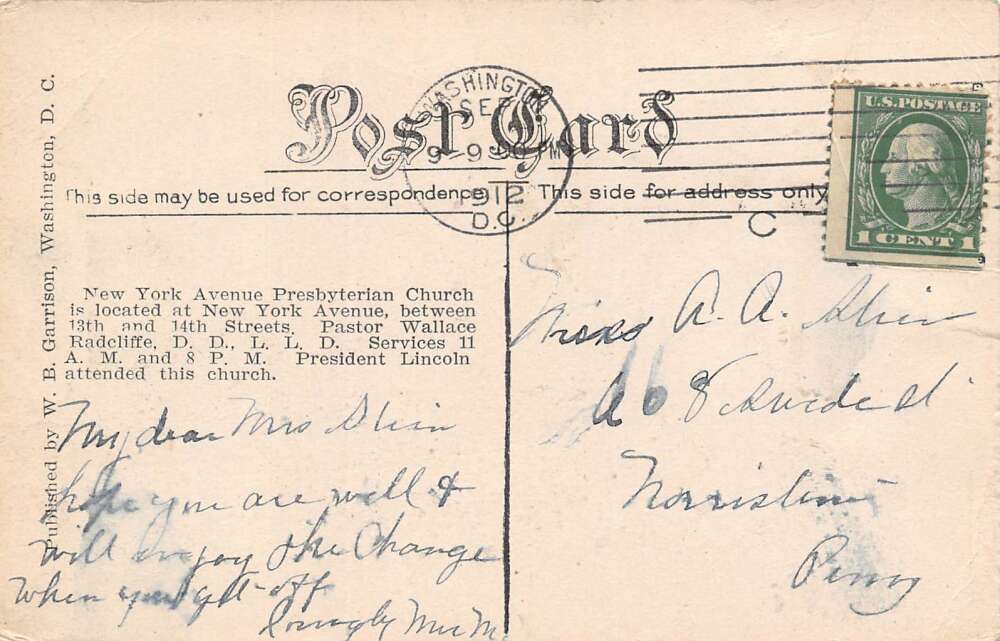 Post Card
This side may be used for correspondence
This side for address only
WASHINGTON
SEP
9 - 9 30 M
1912
D.C.
C
U.S. POSTAGE
1 CENT 1
Published by W. B. Garrison, Washington, D. C.
New York Avenue Presbyterian Church
is located at New York Avenue, between
13th and 14th Streets. Pastor Wallace
Radcliffe, D. D., L. L. D. Services 11
A. M. and 8 P. M. President Lincoln
attended this church.
My dear Mrs
hope you are well &
will enjoy the Change
When you get off
Lovingly
A. A.
Norristown
Penny